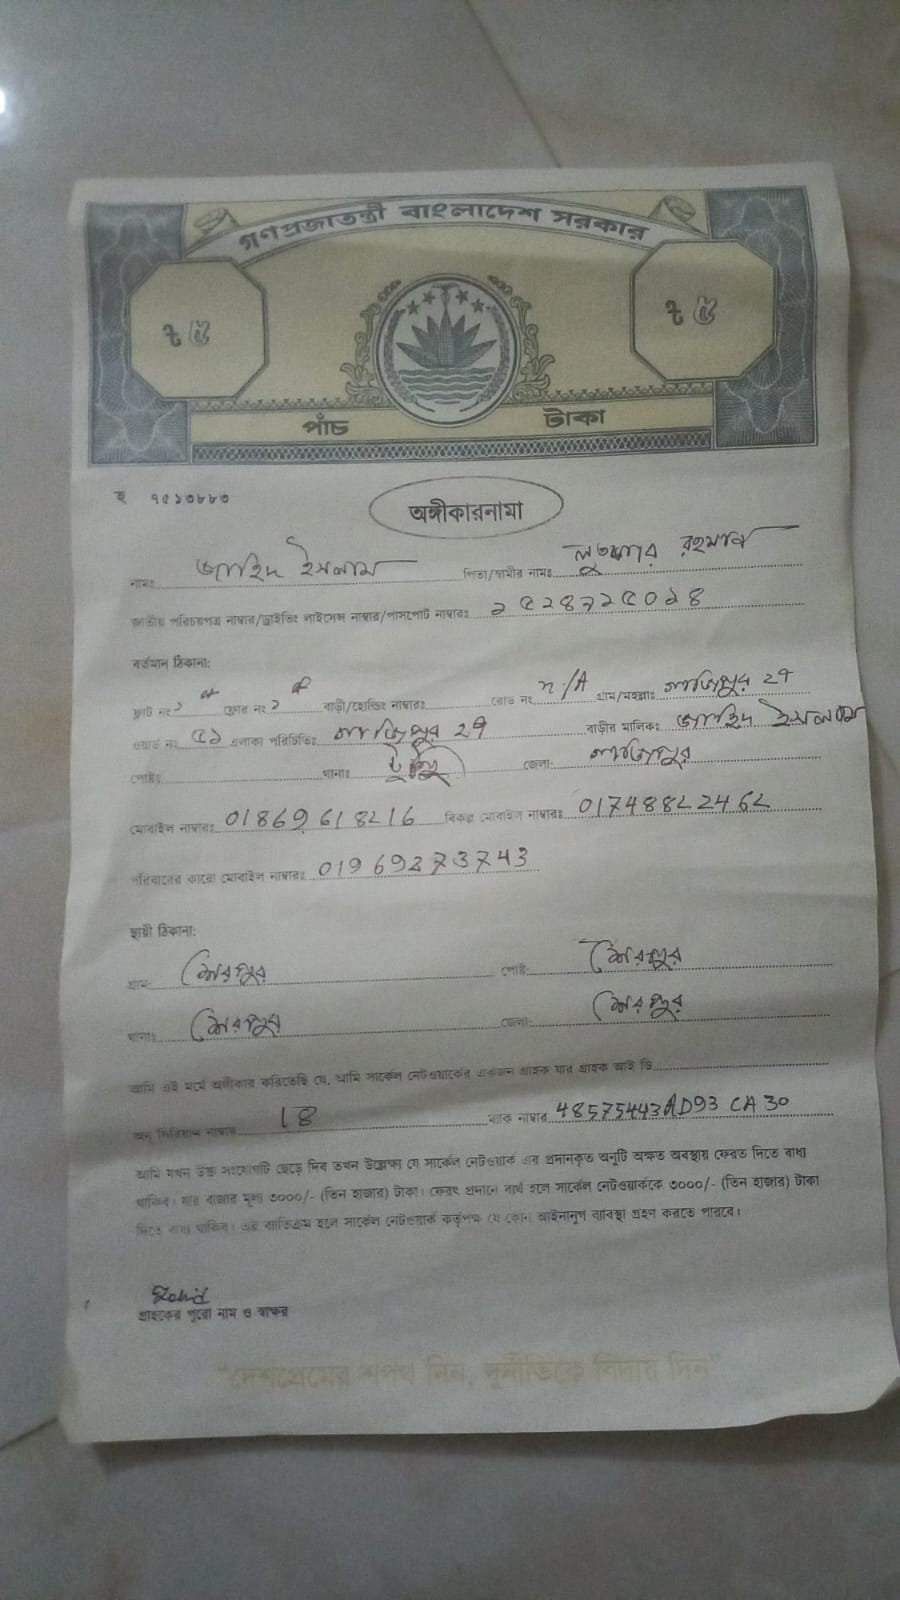 গণপ্রজাতন্ত্রী বাংলাদেশ সরকার
৳ ৫ ৳ ৫
পাঁচ টাকা
হ ৭৫১৩৮৮৩
অঙ্গীকারনামা
নামঃ জাহিদ ইসলাম পিতা/স্বামীর নামঃ রহমান
জাতীয় পরিচয়পত্র নাম্বার/ড্রাইভিং লাইসেন্স নাম্বার/পাসপোর্ট নাম্বারঃ
বর্তমান ঠিকানা:
ফ্লাট নং ফ্লোর নং বাড়ী/হোল্ডিং নাম্বারঃ রোড নং n/A গ্রাম/মহল্লাঃ গাজিপুর
ওয়ার্ড নং ৫১ এলাকা পরিচিতিঃ গাজিপুর বাড়ীর মালিকঃ জাহিদ ইসলাম
পোষ্টঃ থানাঃ জেলা: গাজিপুর
মোবাইল নাম্বারঃ 01869618216 বিকল্প মোবাইল নাম্বারঃ 01748822462
পরিবারের কারো মোবাইল নাম্বারঃ 01969273743
স্থায়ী ঠিকানা:
গ্রাম: শেরপুর পোষ্ট: শেরপুর
থানাঃ শেরপুর জেলা: শেরপুর
আমি এই মর্মে অঙ্গীকার করিতেছি যে, আমি সার্কেল নেটওয়ার্কের একজন গ্রাহক যার গ্রাহক আই ডি
অনু সিরিয়াল নাম্বার 18 ম্যাক নাম্বার 48575443AD93CA30
আমি যখন উক্ত সংযোগটি ছেড়ে দিব তখন উল্লেখ্য যে সার্কেল নেটওয়ার্ক এর প্রদানকৃত অনুটি অক্ষত অবস্থায় ফেরত দিতে বাধ্য
থাকিব। যার বাজার মূল্য ৩০০০/- (তিন হাজার) টাকা। ফেরৎ প্রদানে ব্যর্থ হলে সার্কেল নেটওয়ার্ককে ৩০০০/- (তিন হাজার) টাকা
দিতে বাধ্য থাকিব। এর ব্যতিক্রম হলে সার্কেল নেটওয়ার্ক কর্তৃপক্ষ যে কোন আইনানুগ ব্যবস্থা গ্রহণ করতে পারবে।
Zahid
গ্রাহকের পুরো নাম ও স্বাক্ষর
"দেশপ্রেমের শপথ নিন, দূর্নীতিকে বিদায় দিন"